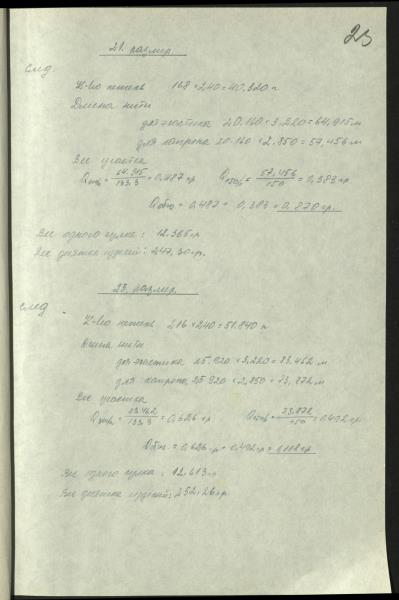 23
21. размер.
след.
К-во петель 168 × 240 = 40.320 п
Длина нити
для эластика 20.160 × 3,220 = 64,915 м
для капрона 20.160 × 2.850 = 57,456 м
Вес участка
Qэл. = 64.915 / 133,3 = 0,487 гр Qкап. = 57,456 / 150 = 0,383 гр
Qобщ = 0,487 + 0,383 = 0,870 гр.
Вес одного чулка: 12.365 г
Вес десятка изделий: 247,30 гр.
23. размер.
след.
К-во петель 216 × 240 = 51.840 п
Длина нити
для эластика 25.920 × 3,220 = 83.462 м
для капрона 25 920 × 2,850 = 73,872 м
Вес участка
Qэл. = 83.462 / 133,3 = 0,626 гр Qкап. = 73,872 / 150 = 0,492 гр
Qобщ. = 0,626 гр + 0,492 гр = 1,118 гр
Вес одного чулка: 12,613 г
Вес десятка изделий: 252,26 гр